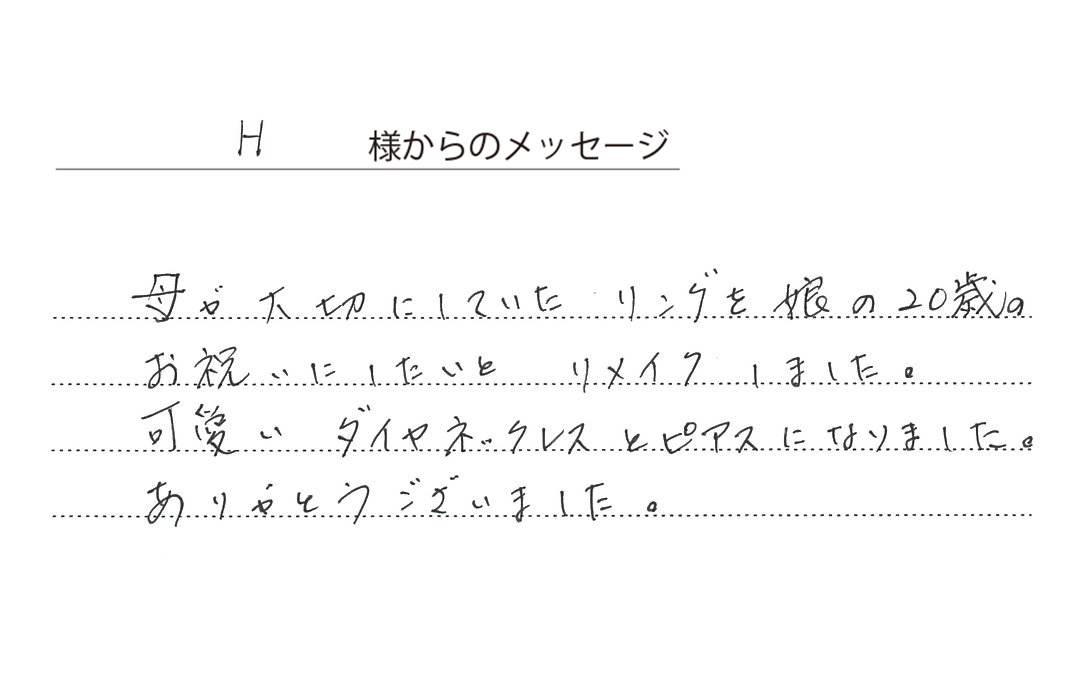 H 様からのメッセージ
母が大切にしていた リングを娘の20歳の
お祝いにしたいと リメイクしました。
可愛い ダイヤネックレスとピアスになりました。
ありがとうございました。